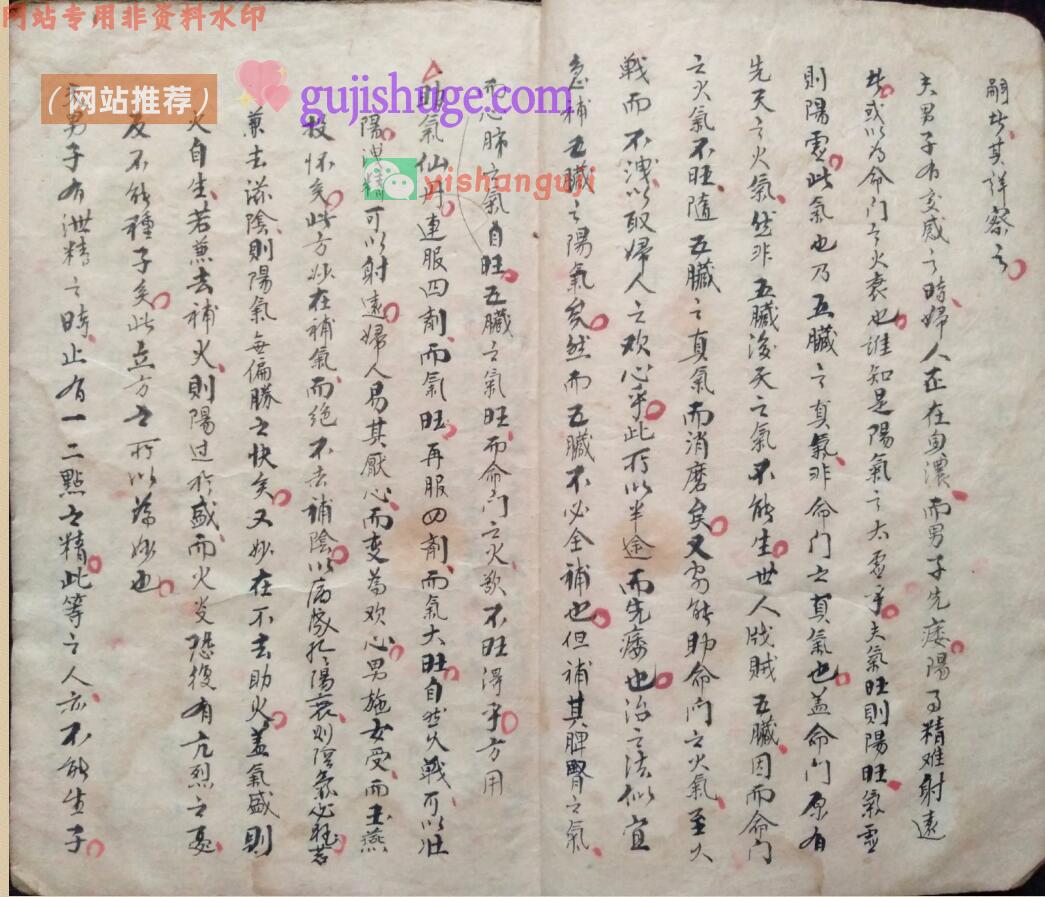 网站专用非资料水印
（网站推荐）
gujishuge.com
yishanguji
嗣者其詳察之
夫男子有交感之時婦人正在興濃而男子先痿陽事精难射遠
者或以为命门之火衰也誰知是陽氣之太虚乎夫氣旺則陽旺氣虚
則陽虚此氣也乃五臟之真氣非命门之真氣也盖命门原有
先天之火氣然非五臟後天之氣不能生世人戕賊五臟因而命门
之火氣不旺隨五臟之真氣而消磨矣又安能助命门之火氣至久
戦而不洩以取婦人之欢心乎此所以半途而先痿也治之法似宜
急補五臟之陽氣矣然而五臟不必全補也但補其脾腎之氣
而心肺之氣自旺五臟之氣旺而命门之火欲不旺得乎方用
助氣仙丹連服四剤而氣旺再服四剤而氣大旺自然久戦可以壮
陽洩精可以射遠婦人易其厭心而变為欢心男施女受而玉燕
投怀矣此方妙在補氣而絶不去補陰以病陽衰則陰氣必
兼去滋陰則陽氣無偏勝之快矣又妙在不去助火盖氣盛則
火自生若兼去補火則陽过於盛而火炎恐復有亢烈之憂
反不能種子矣此立方之所以為妙也
男子有泄精之時止有一二點之精此等之人亦不能生子